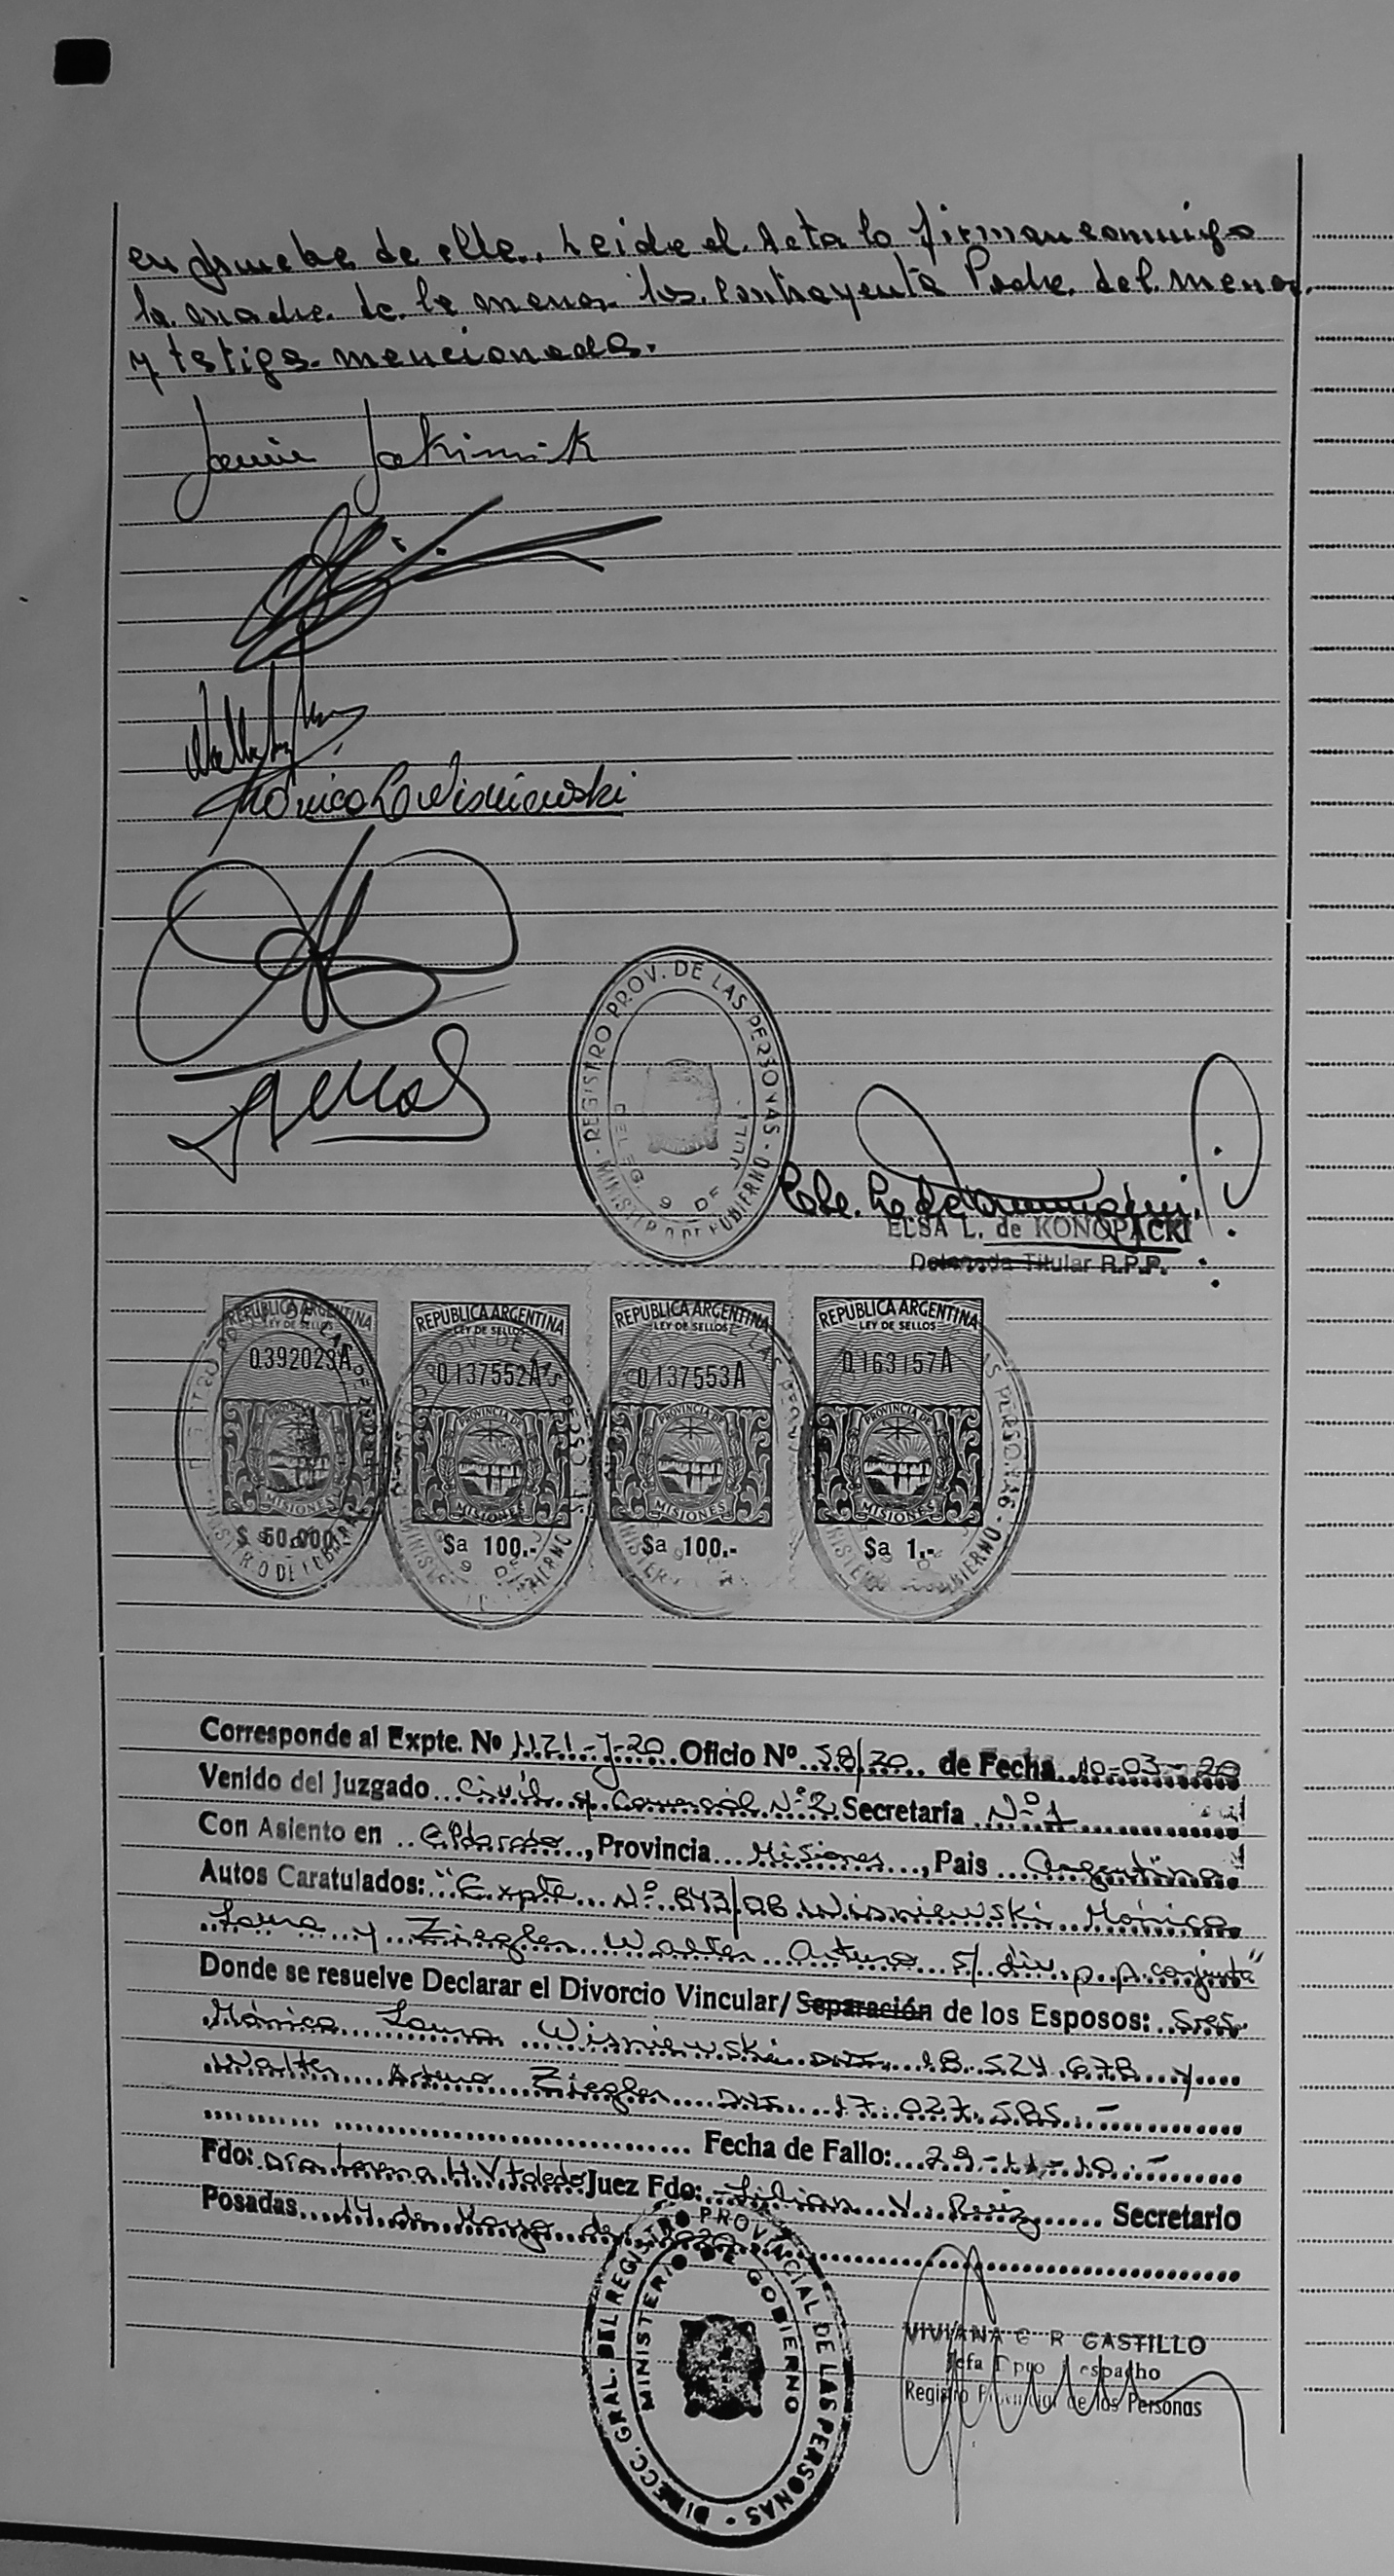 en prueba de ello. Leida el Acta lo firman conmigo
la madre de la menor los contrayente Padre del menor
y testigo mencionado.
Jakimik
Mónica L Wisniewski
REGISTRO PROV. DE LAS PERSONAS - MINISTRO DE GOBIERNO
DELEG. 9 DE JULIO
ELSA L. de KONOPACKI
Delegada Titular R.P.P.
REPUBLICA ARGENTINA REPUBLICA ARGENTINA REPUBLICA ARGENTINA REPUBLICA ARGENTINA
LEY DE SELLOS LEY DE SELLOS LEY DE SELLOS LEY DE SELLOS
0.392023A 0.137552A 0.137553A 0.163157A
PROVINCIA DE PROVINCIA DE PROVINCIA DE
MISIONES MISIONES MISIONES MISIONES
$ 50.000 $a 100.- $a 100.- $a 1.-
Corresponde al Expte. Nº 1121-J-20 Oficio Nº 58/20 de Fecha 10-03-20
Venido del Juzgado Civil y Comercial Nº2 Secretaría Nº1
Con Asiento en Eldorado, Provincia Misiones, Pais Argentina
Autos Caratulados: "Expte Nº 843/08 Wisniewski Mónica
Laura y Ziegler Walter Arturo s/ div. p. p. conjunta"
Donde se resuelve Declarar el Divorcio Vincular/Separación de los Esposos: Sres
Mónica Laura Wisniewski DNI 18.524.678 y
Walter Arturo Ziegler DNI 17.027.585.-
Fecha de Fallo: 29-11-10.-
Fdo: Dra Lorena H.V. Toledo Juez Fdo: Lilian V. Ruiz Secretario
Posadas 14 de Mayo de 2020
DIRECC. GRAL. DEL REGISTRO PROVINCIAL DE LAS PERSONAS
MINISTERIO DE GOBIERNO
VIVIANA G R CASTILLO
Jefa Dpto Despacho
Registro Provincial de las Personas